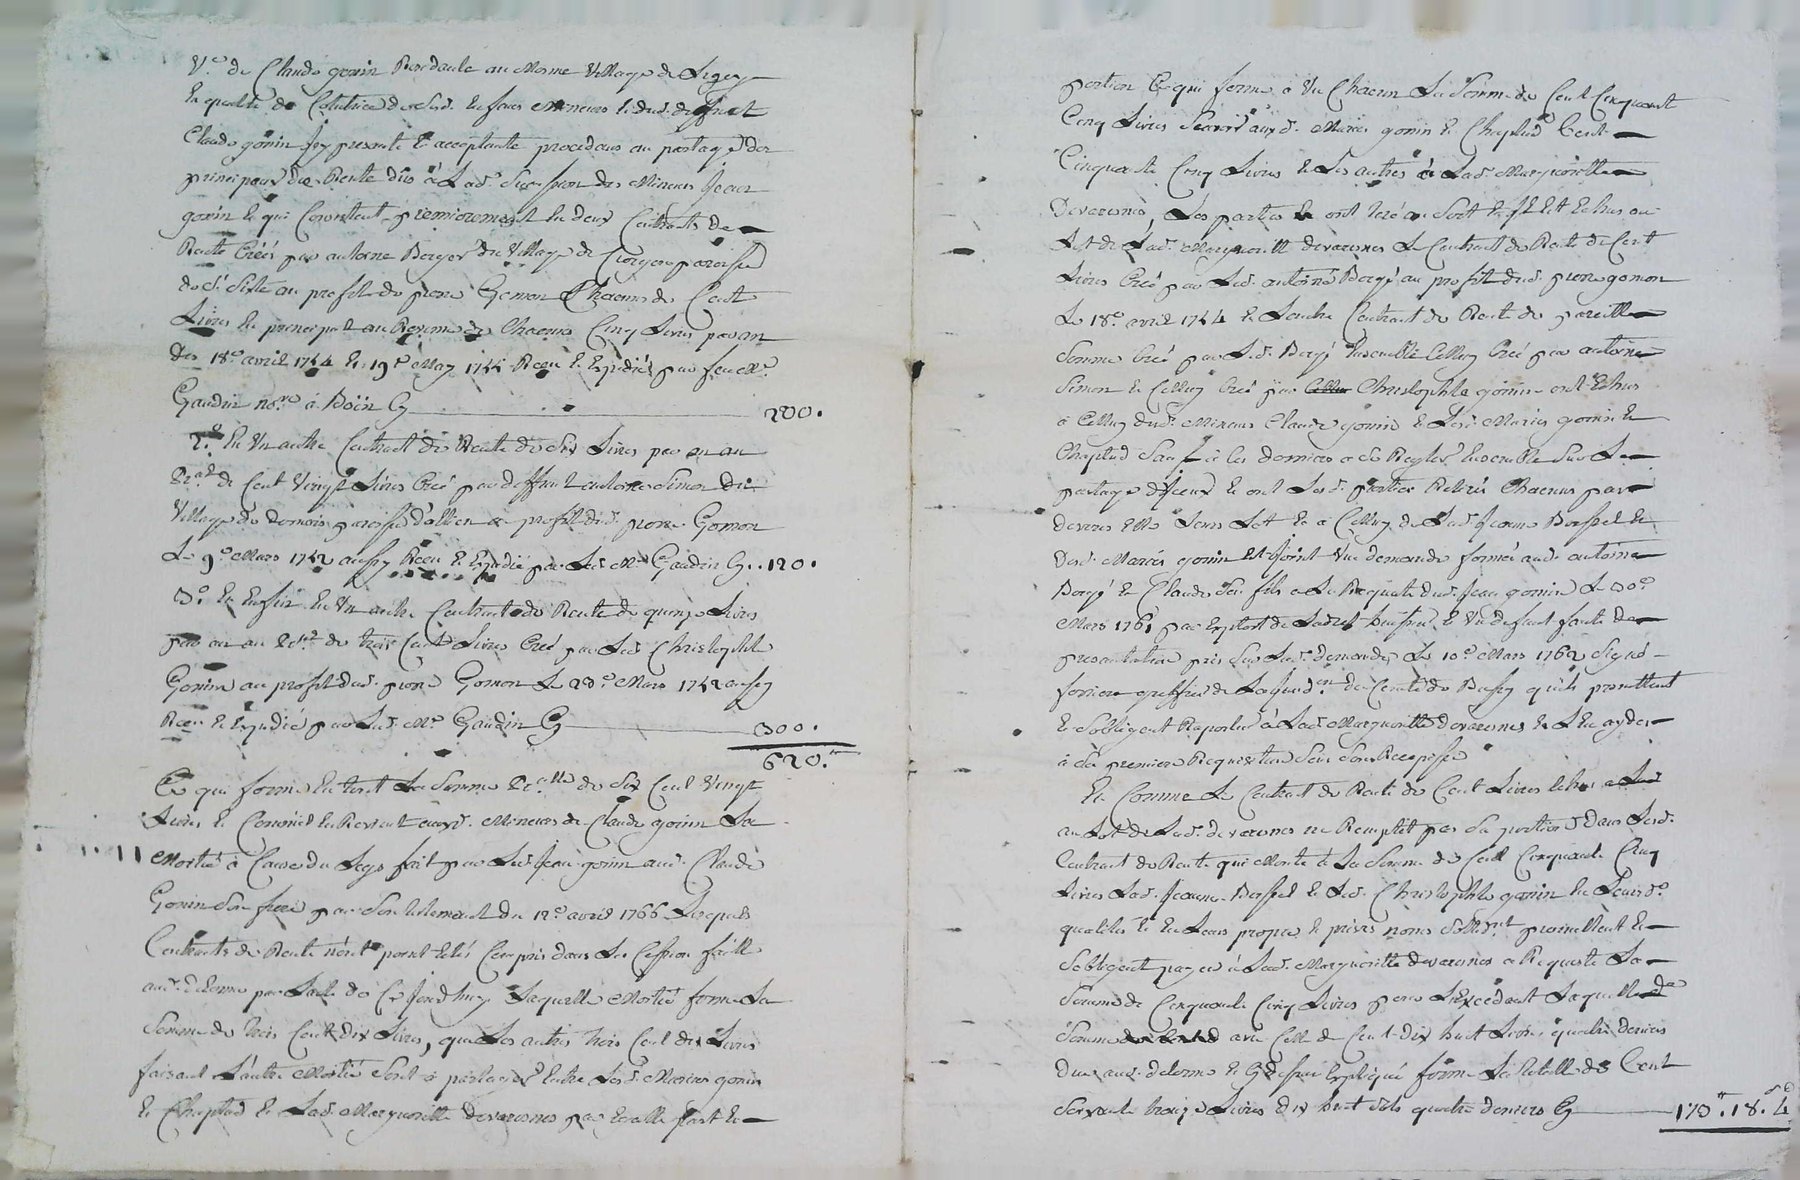 Ve. de Claude gonin Residante au mesme Village deLigny
En qualité de Cotutrice desd. Enfans Mineurs & dud. deffunt
Claude gonin Icy presente & acceptante procedans au partage des
principaux de Rente dûs à Lad. Succession des Mineurs Jean
gonin Ce qui Consistent, premierement En deux Contrats de
Rente Créés par antoine Berger du Village de paroisse
de St. Sixte au profit de pierre Gomon Chacun de Cent
Livres En principal au Revenu de Chacun Cinq Livres par an
Des 18e. avril 1754 & 19e. May 1755 Receu & Expédiés par feu Me.
Gaudin nore. à Boën Cy 200.
2.° En Un autre Contrat de Rente de Six Livres par an au
pal. de Cent Vingt Livres Créé par deffunt antoine Simon du
Village de paroisse d'allieu au profit dud. pierre Gomon
Le 9e. Mars 1752 aussy Receu & Expédié par Led. Me. Gaudin Cy .. 120.
3.° Et Enfin En Un autre Contrat de Rente de quinze Livres
par an au pal. de trois Cent Livres Créé par Led. Christophle
Gonin au profit dud. pierre Gomon Le 28e. Mars 1752 aussy
Receu & Expédié par Led. Me. Gaudin Cy 300.
620.tt
Ce qui forme En tout La Somme palle. de Six Cent Vingt
Livres Et Revient auxd. Mineurs de Claude gonin La
Moitié à Cause du Legs fait par Led. Jean gonin aud. Claude
Gonin Son frere par Son testament du 12e. avril 1766 Lesquels
Contrats de Rente n'ont point Etté Compris dans La Cession faitte
aud. delorme par Lacte de Ce Jourd'huy Laquelle Moitié forme La
Somme de trois Cent dix Livres, que Les autres trois Cent dix Livres
faisant L'autre Moitié Sont à partager Entre Lesd. Maries gonin
& Chaptud & Lad. Margueritte Devarenes par Egalle part &
portion Ce qui forme à Un Chacun La Somme de Cent Cinquante
Cinq Livres Scavoir auxd. Maries gonin & Chaptud Cent
Cinquante Cinq Livres & Les autres à Lad. Margueritte
Devarenes, Les parties ont tiré au Sort & Il Est Echus au
Lot de Lad. Margueritte Devarenes Le Contrat de Rente de Cent
Livres Créé par Led. antoine Bergé au profit dud. pierre gomon
Le 18e. avril 1754 & Lautre Contrat de Rente de pareille
Somme Créé par Led. Bergé Ensemble Celluy Créé par antoine
Simon & Celluy Créé par Christophle gonin ont Echus
à Celluy dud. Mineurs Claude gonin & Lesd. Maries gonin &
Chaptud Sauf à Ces derniers a Se Regler Ensemble Sur Le
partage d'Iceux & ont Lesd. parties Retirés Chacuns par
devers Elle Leurs Lot & à Celluy de Lad. Jeanne Bossel &
Desd. Maries gonin Est Joint Une demande formée aud. antoine
Bergé & Claude Son fils à La Requete dud. Jean gonin Le 30e.
Mars 1761 par Exploit de huissier & Un defaut faute de
presentation pris Sur Lad. demande, Le 10e. Mars 1762 Signé
greffier de La Jurisd.on du Comté de Bussy qu'ils promettent
& Sobligent Raporter à Lad. Margueritte Devarenes & L'En ayder
à Sa premiere Requisition Sous Son Recepissé
Et Comme Le Contrat de Rente de Cent Livres Echus
au Lot de Lad. devarenes ne Remplit pas Sa portion dans Lesd.
Contrat de Rente qui Monte à La Somme de Cent Cinquante Cinq
Livres Lad. Jeanne Bossel & Led. Christophle gonin En Leursd.
qualités & En Leurs propre & privés noms Sollid.nt promettent &
Sobligent payer à Lad. Margueritte Devarenes a Requeste La
Somme de Cinquante Cinq Livres pour L'Excedant Laquelle
Somme avec Celle de Cent dix huit Livres quatre deniers
Due aud. delorme & Cydessus Expliqué forme La totalle de Cent
Soixante treize Livres dix huit Sols quatre deniers Cy 173tt. 18.s 4.d